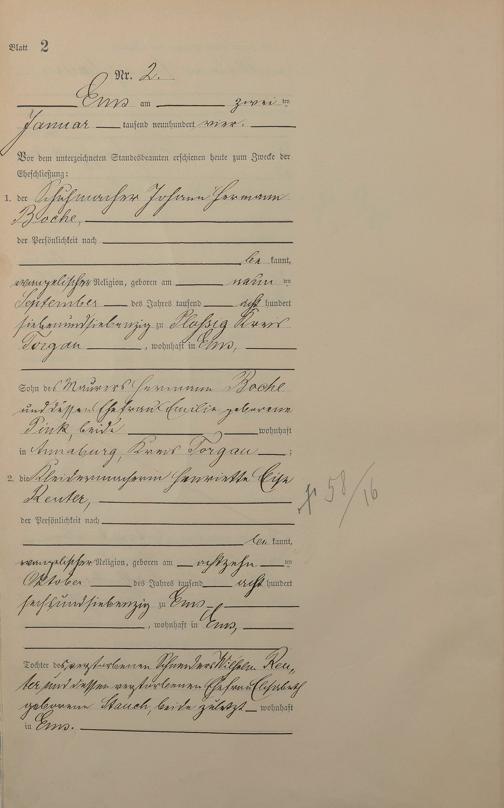 Blatt 2
Nr. 2.
Ems am zwei ten
Januar tausend neunhundert vier.
Vor dem unterzeichneten Standesbeamten erschienen heute zum Zwecke der
Eheschließung:
1. der Schuhmacher Johann Hermann
Boche,
der Persönlichkeit nach
be kannt,
evangelischer Religion, geboren am neun ten
September des Jahres tausend acht hundert
siebenundsiebenzig zu Plossig Kreis
Torgau, wohnhaft in Ems,
Sohn des Maurers Hermann Boche
und dessen Ehefrau Emilie geborene
beide wohnhaft
in Annaburg, Kreis Torgau;
2. die Kleidermacherin Henriette Elise
Reuter,
der Persönlichkeit nach
be kannt,
evangelischer Religion, geboren am achtzehn ten
Oktober des Jahres tausend acht hundert
sechsundsiebenzig zu Ems
, wohnhaft in Ems,
Tochter des verstorbenen Schneiders Wilhelm Reu-
ter und dessen verstorbenen Ehefrau Elisabeth
geborene Stauch, beide zuletzt wohnhaft
in Ems.
58/16